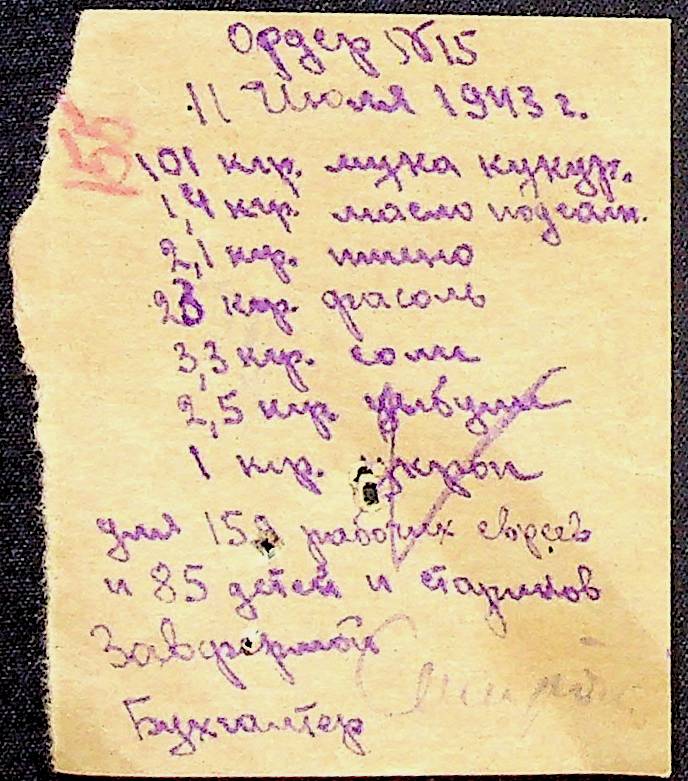 Ордер №15
11 Июля 1943 г.
155
101 кгр. мука кукур.
1,4 кгр. масло подсолн.
2,1 кгр. пшено
23 кгр. фасоль
3,3 кгр. соли
2,5 кгр. цибули
1 кгр. укроп
для 158 рабочих евреев
и 85 детей и стариков
Завфермой
Бухгалтер